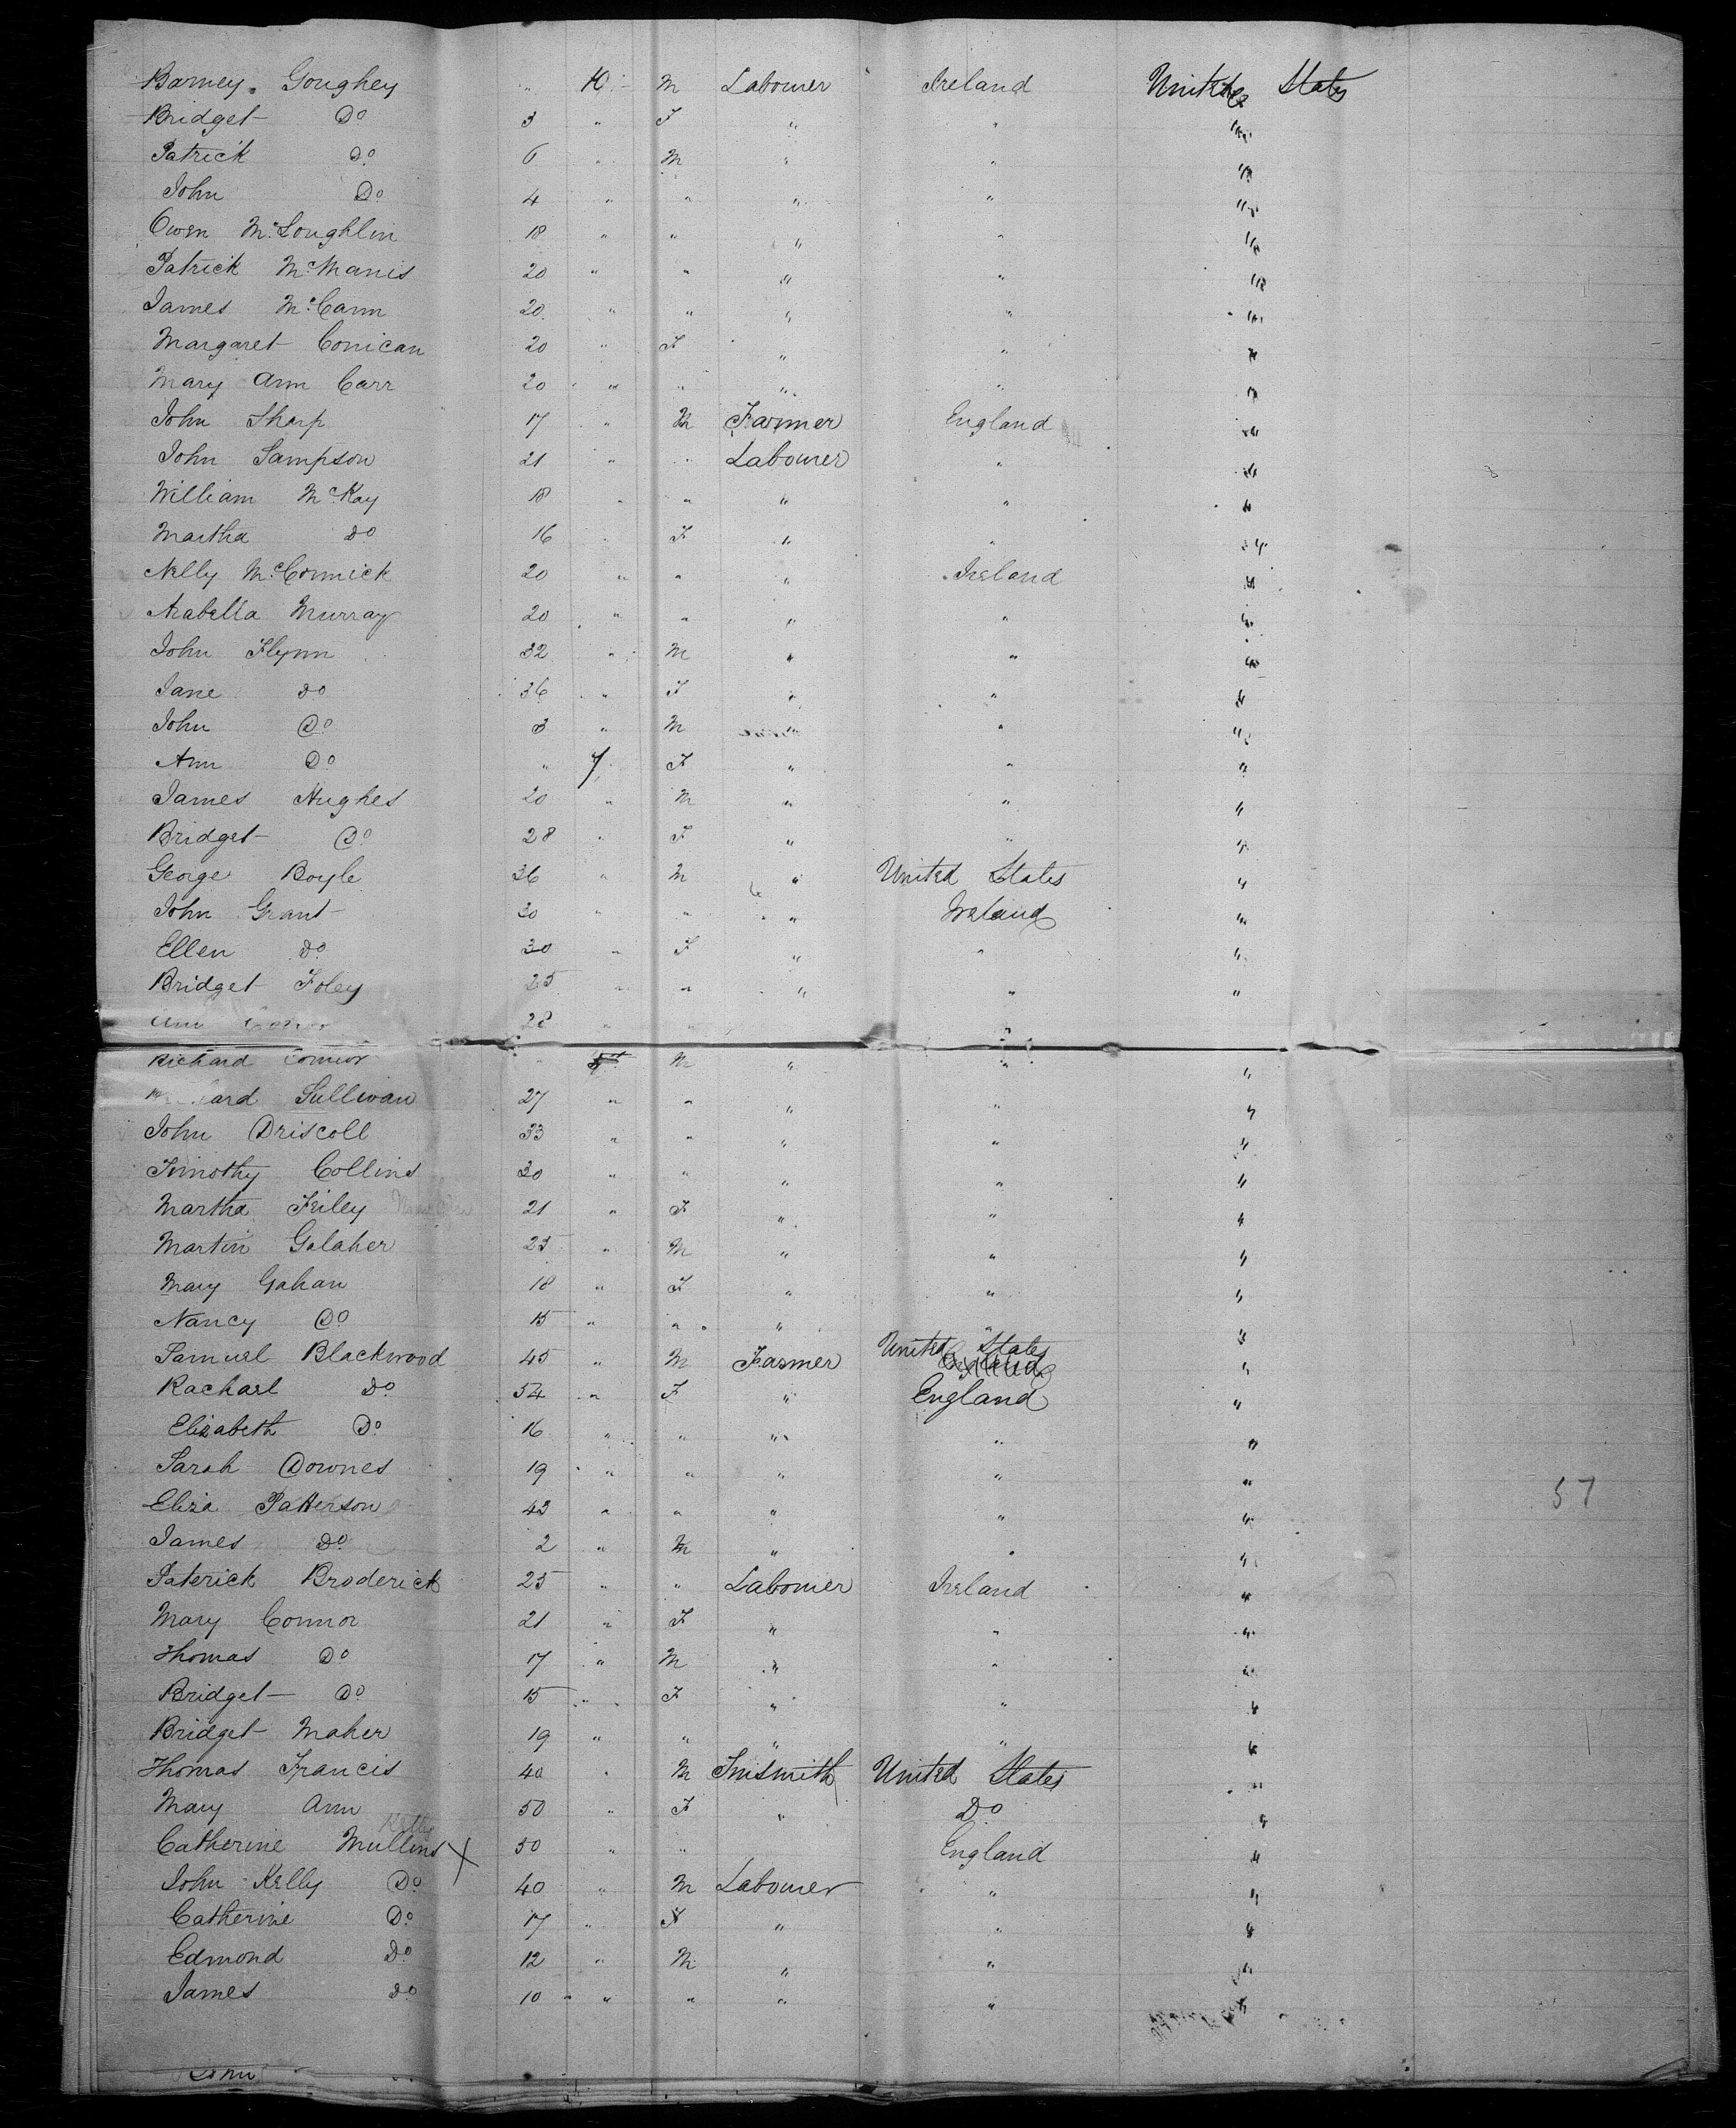 Barney Goughey " 10 M Labourer Ireland United States
Bridget Do 3 " F " " "
Patrick Do 6 " M " " "
John Do 4 " " " " "
Owen McLoughlin 18 " " " " "
Patrick McManis 20 " " " " "
James McCann 20 " " " " "
Margaret Conican 20 " F " " "
Mary Ann Carr 20 " " " " "
John Sharp 17 " M Farmer England "
John Sampson 21 " " Labourer " "
William McKay 18 " " " " "
Martha Do 16 " F " " "
Nelly McCormick 20 " " " Ireland "
Arabella Murray 20 " " " " "
John Flynn 32 " M " " "
Jane Do 36 " F " " "
John Do 3 " M " " "
Ann Do " 7 F " " "
James Hughes 20 " M " " "
Bridget Do 28 " F " " "
George Boyle 36 " M " United States "
John Grant 30 " " " Ireland "
Ellen Do 30 " F " " "
Bridget Foley 25 " " " " "
Ann 28 "
Richard Connor M " " "
Sullivan 27 " " " " "
John Driscoll 33 " " " " "
Timothy Collins 30 " " " " "
Martha Friley 21 " F " " "
Martin Galaher 25 " M " " "
Mary Gahan 18 " F " " "
Nancy Do 15 " " " " "
Samuel Blackwood 45 " M Farmer United States "
Rachael Do 54 " F " England "
Elizabeth Do 16 " " " " "
Sarah Downes 19 " " " " "
Eliza Patterson 43 " " " " "
57
James Do 2 " M " " "
Paterick Broderick 25 " " Labourer Ireland "
Mary Connor 21 " F " " "
Thomas Do 17 " M " " "
Bridget Do 15 " F " " "
Bridget Maher 19 " " " " "
Thomas Francis 40 " M Tinsmith United States "
Mary Ann 50 " F " Do "
Kelly
Catherine Mullins X 50 " " England "
John Kelly Do 40 " M Labourer " "
Catherine Do 17 " F " " "
Edmond Do 12 " M " " "
James Do 10 " " " " "
John